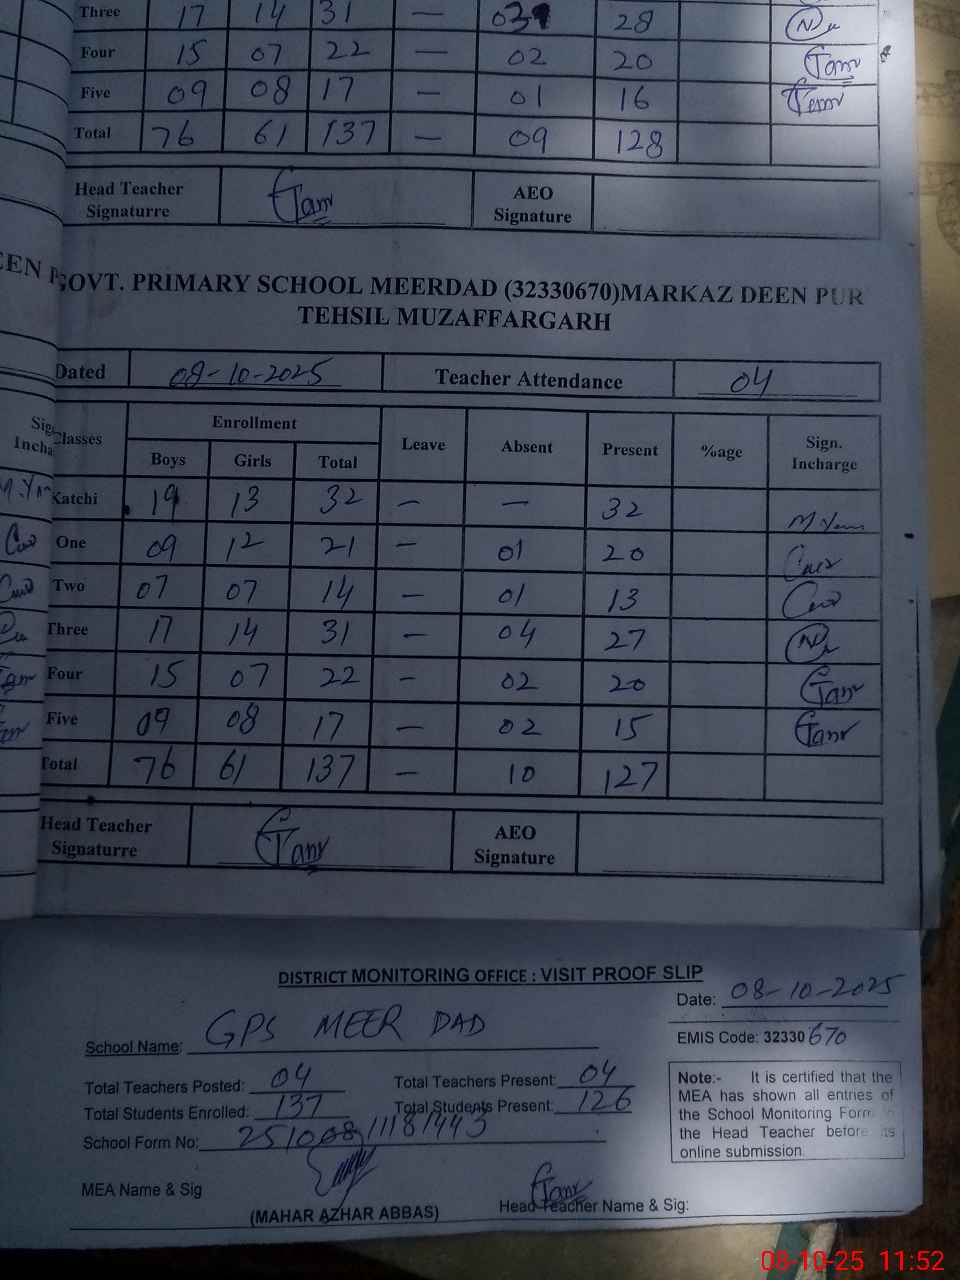 Three 17 14 31 — 28
Four 15 07 22 — 02 20
Five 09 08 17 — 01 16
Total 76 61 137 — 09 128
Head Teacher Signaturre AEO Signature
GOVT. PRIMARY SCHOOL MEERDAD (32330670)MARKAZ DEEN PUR
TEHSIL MUZAFFARGARH
Dated 08-10-2025 Teacher Attendance 04
Classes Enrollment Leave Absent Present %age Sign. Incharge
Boys Girls Total
Katchi 19 13 32 — — 32
One 09 12 21 — 01 20
Two 07 07 14 — 01 13
Three 17 14 31 — 04 27
Four 15 07 22 — 02 20
Five 09 08 17 — 02 15
Total 76 61 137 — 10 127
Head Teacher Signaturre AEO Signature
DISTRICT MONITORING OFFICE : VISIT PROOF SLIP
Date: 08-10-2025
School Name: GPS MEER DAD EMIS Code: 32330670
Total Teachers Posted: 04 Total Teachers Present: 04
Total Students Enrolled: 137 Total Students Present: 126
School Form No: 25100811181443
Note:- It is certified that the
MEA has shown all entries of
the School Monitoring Form
the Head Teacher before its
online submission.
MEA Name & Sig
(MAHAR AZHAR ABBAS) Head Teacher Name & Sig:
08-10-25 11:52